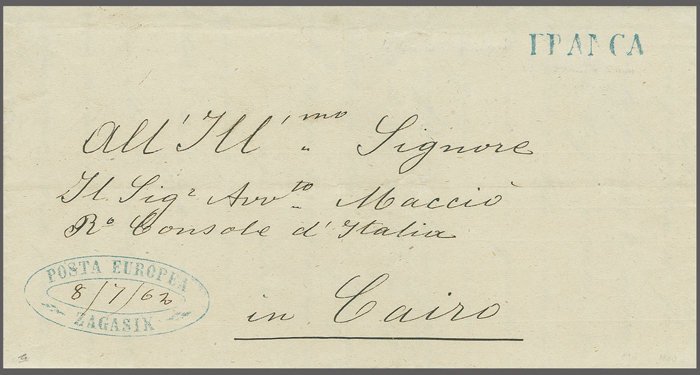 FRANCA
All' Ill'mo Signore
Il Sigr Avvto Macciò
Ro Console d'Italia
in Cairo
POSTA EUROPEA
8/7/62
ZAGASIK